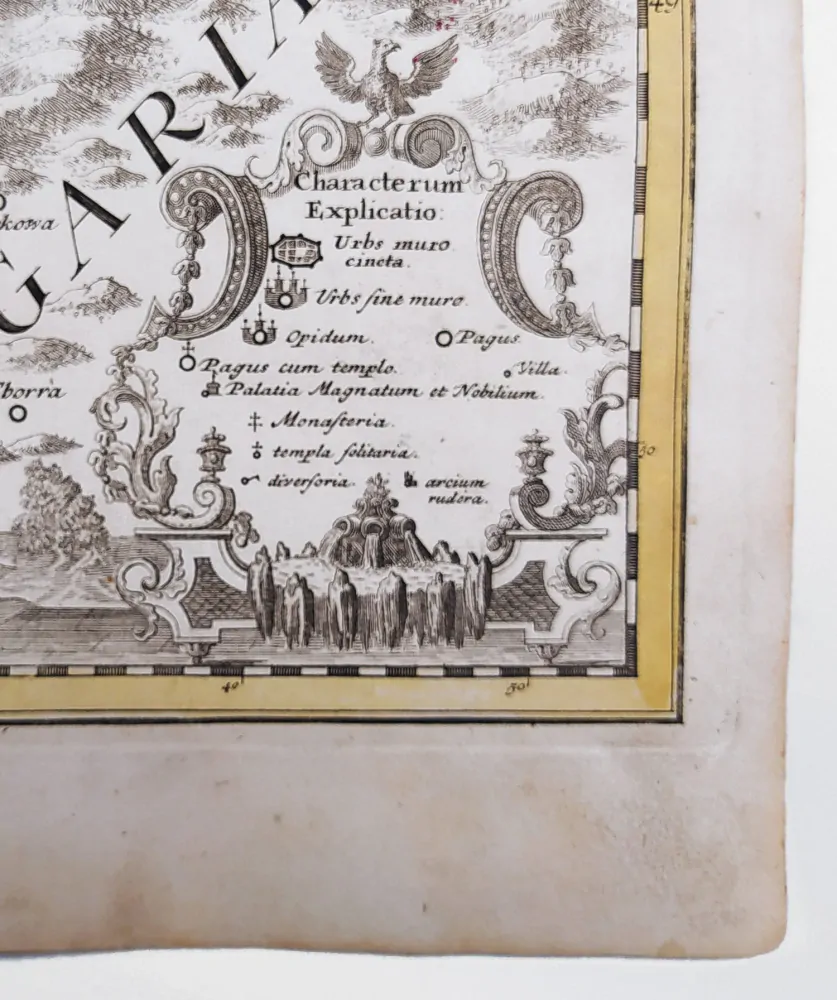 49
GARIA
kowa
Characterum
Explicatio:
Urbs muro
cincta.
Urbs ſine muro.
Opidum.
Pagus.
Pagus cum templo.
Villa.
Palatia Magnatum et Nobilium.
Monaſteria.
templa ſolitaria.
diverſoria.
arcium
rudera.
borrà
50
40
50